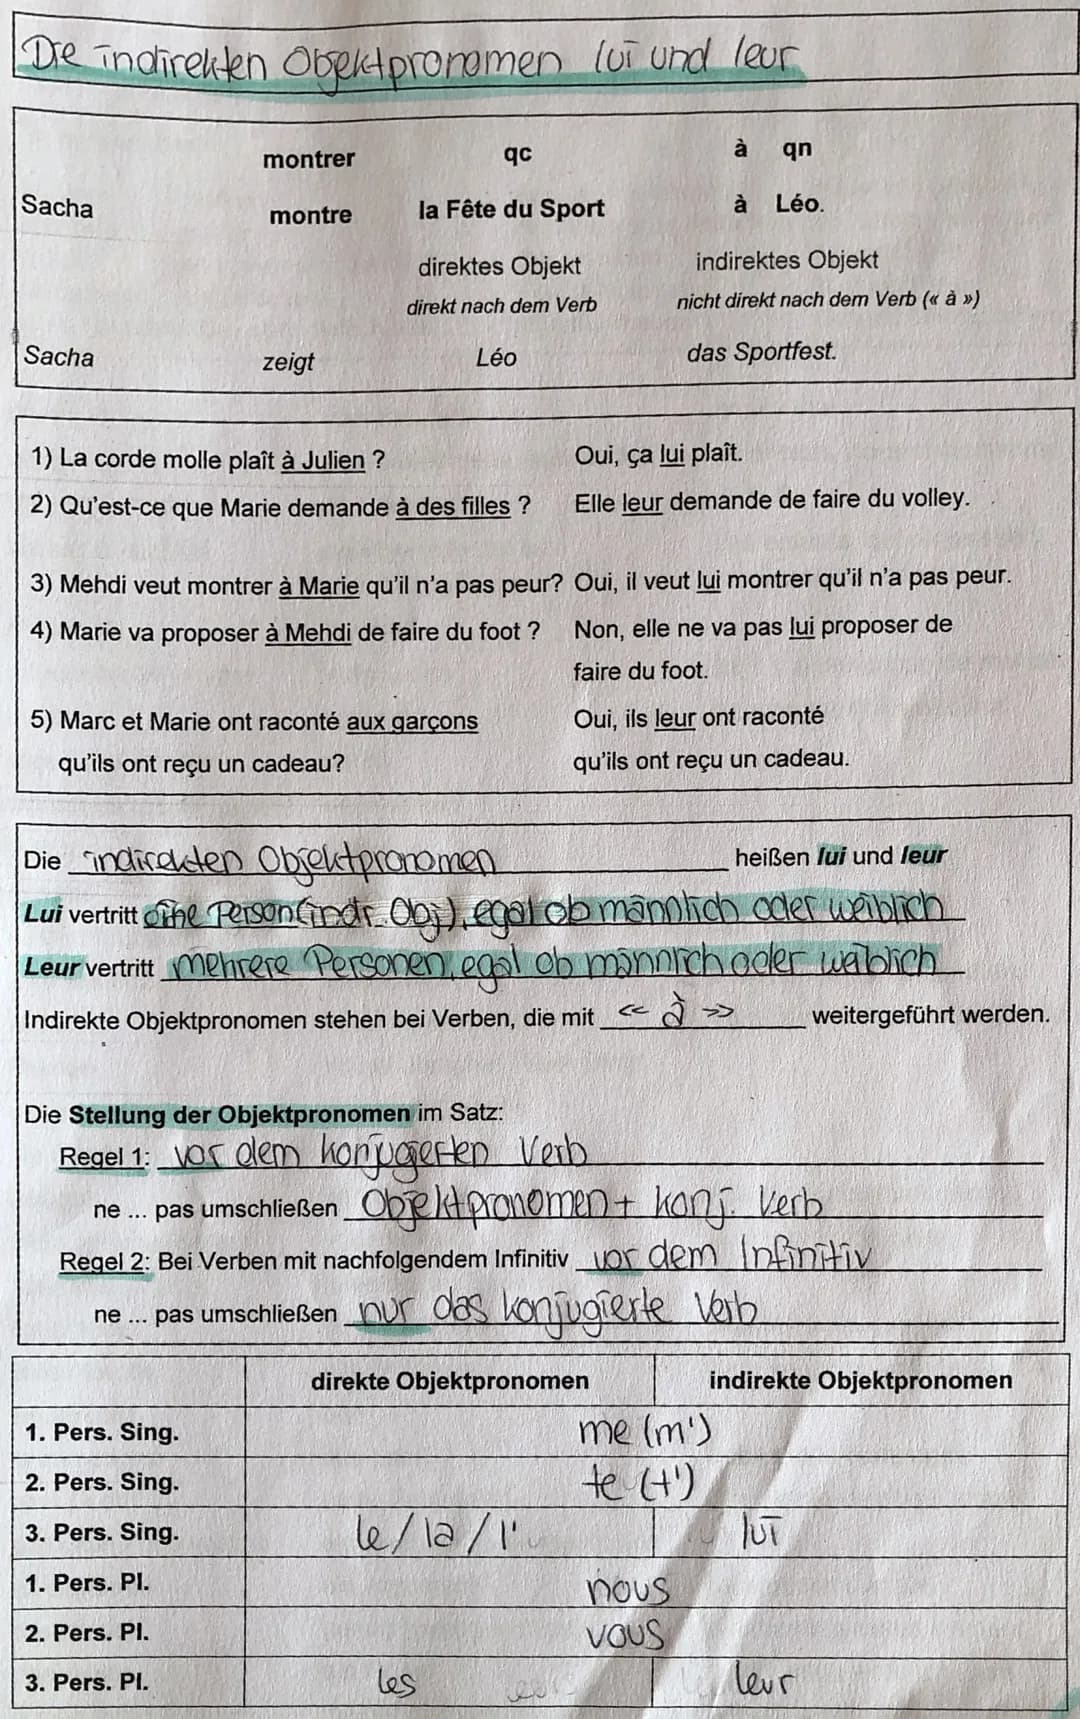 Die indirekten Objektpronomen lui und leur
montrer qc à qn
Sacha montre la Fête du Sport à Léo.
direktes Objekt indirektes Objekt
direkt nach dem Verb nicht direkt nach dem Verb (« à »)
Sacha zeigt Léo das Sportfest.
1) La corde molle plaît à Julien ? Oui, ça lui plaît.
2) Qu'est-ce que Marie demande à des filles ? Elle leur demande de faire du volley.
3) Mehdi veut montrer à Marie qu'il n'a pas peur? Oui, il veut lui montrer qu'il n'a pas peur.
4) Marie va proposer à Mehdi de faire du foot ? Non, elle ne va pas lui proposer de
faire du foot.
5) Marc et Marie ont raconté aux garçons Oui, ils leur ont raconté
qu'ils ont reçu un cadeau? qu'ils ont reçu un cadeau.
Die indirekten Objektpronomen heißen lui und leur
Lui vertritt eine Person (indr. Obj), egal ob männlich oder weiblich
Leur vertritt mehrere Personen, egal ob männlich oder weiblich
Indirekte Objektpronomen stehen bei Verben, die mit << à >> weitergeführt werden.
Die Stellung der Objektpronomen im Satz:
Regel 1: vor dem konjugierten Verb
ne ... pas umschließen Objektpronomen + konj. Verb
Regel 2: Bei Verben mit nachfolgendem Infinitiv vor dem Infinitiv
ne ... pas umschließen nur das konjugierte Verb
direkte Objektpronomen indirekte Objektpronomen
1. Pers. Sing. me (m')
2. Pers. Sing. te (t')
3. Pers. Sing. le / la / l' lui
1. Pers. Pl. nous
2. Pers. Pl. vous
3. Pers. Pl. les leur